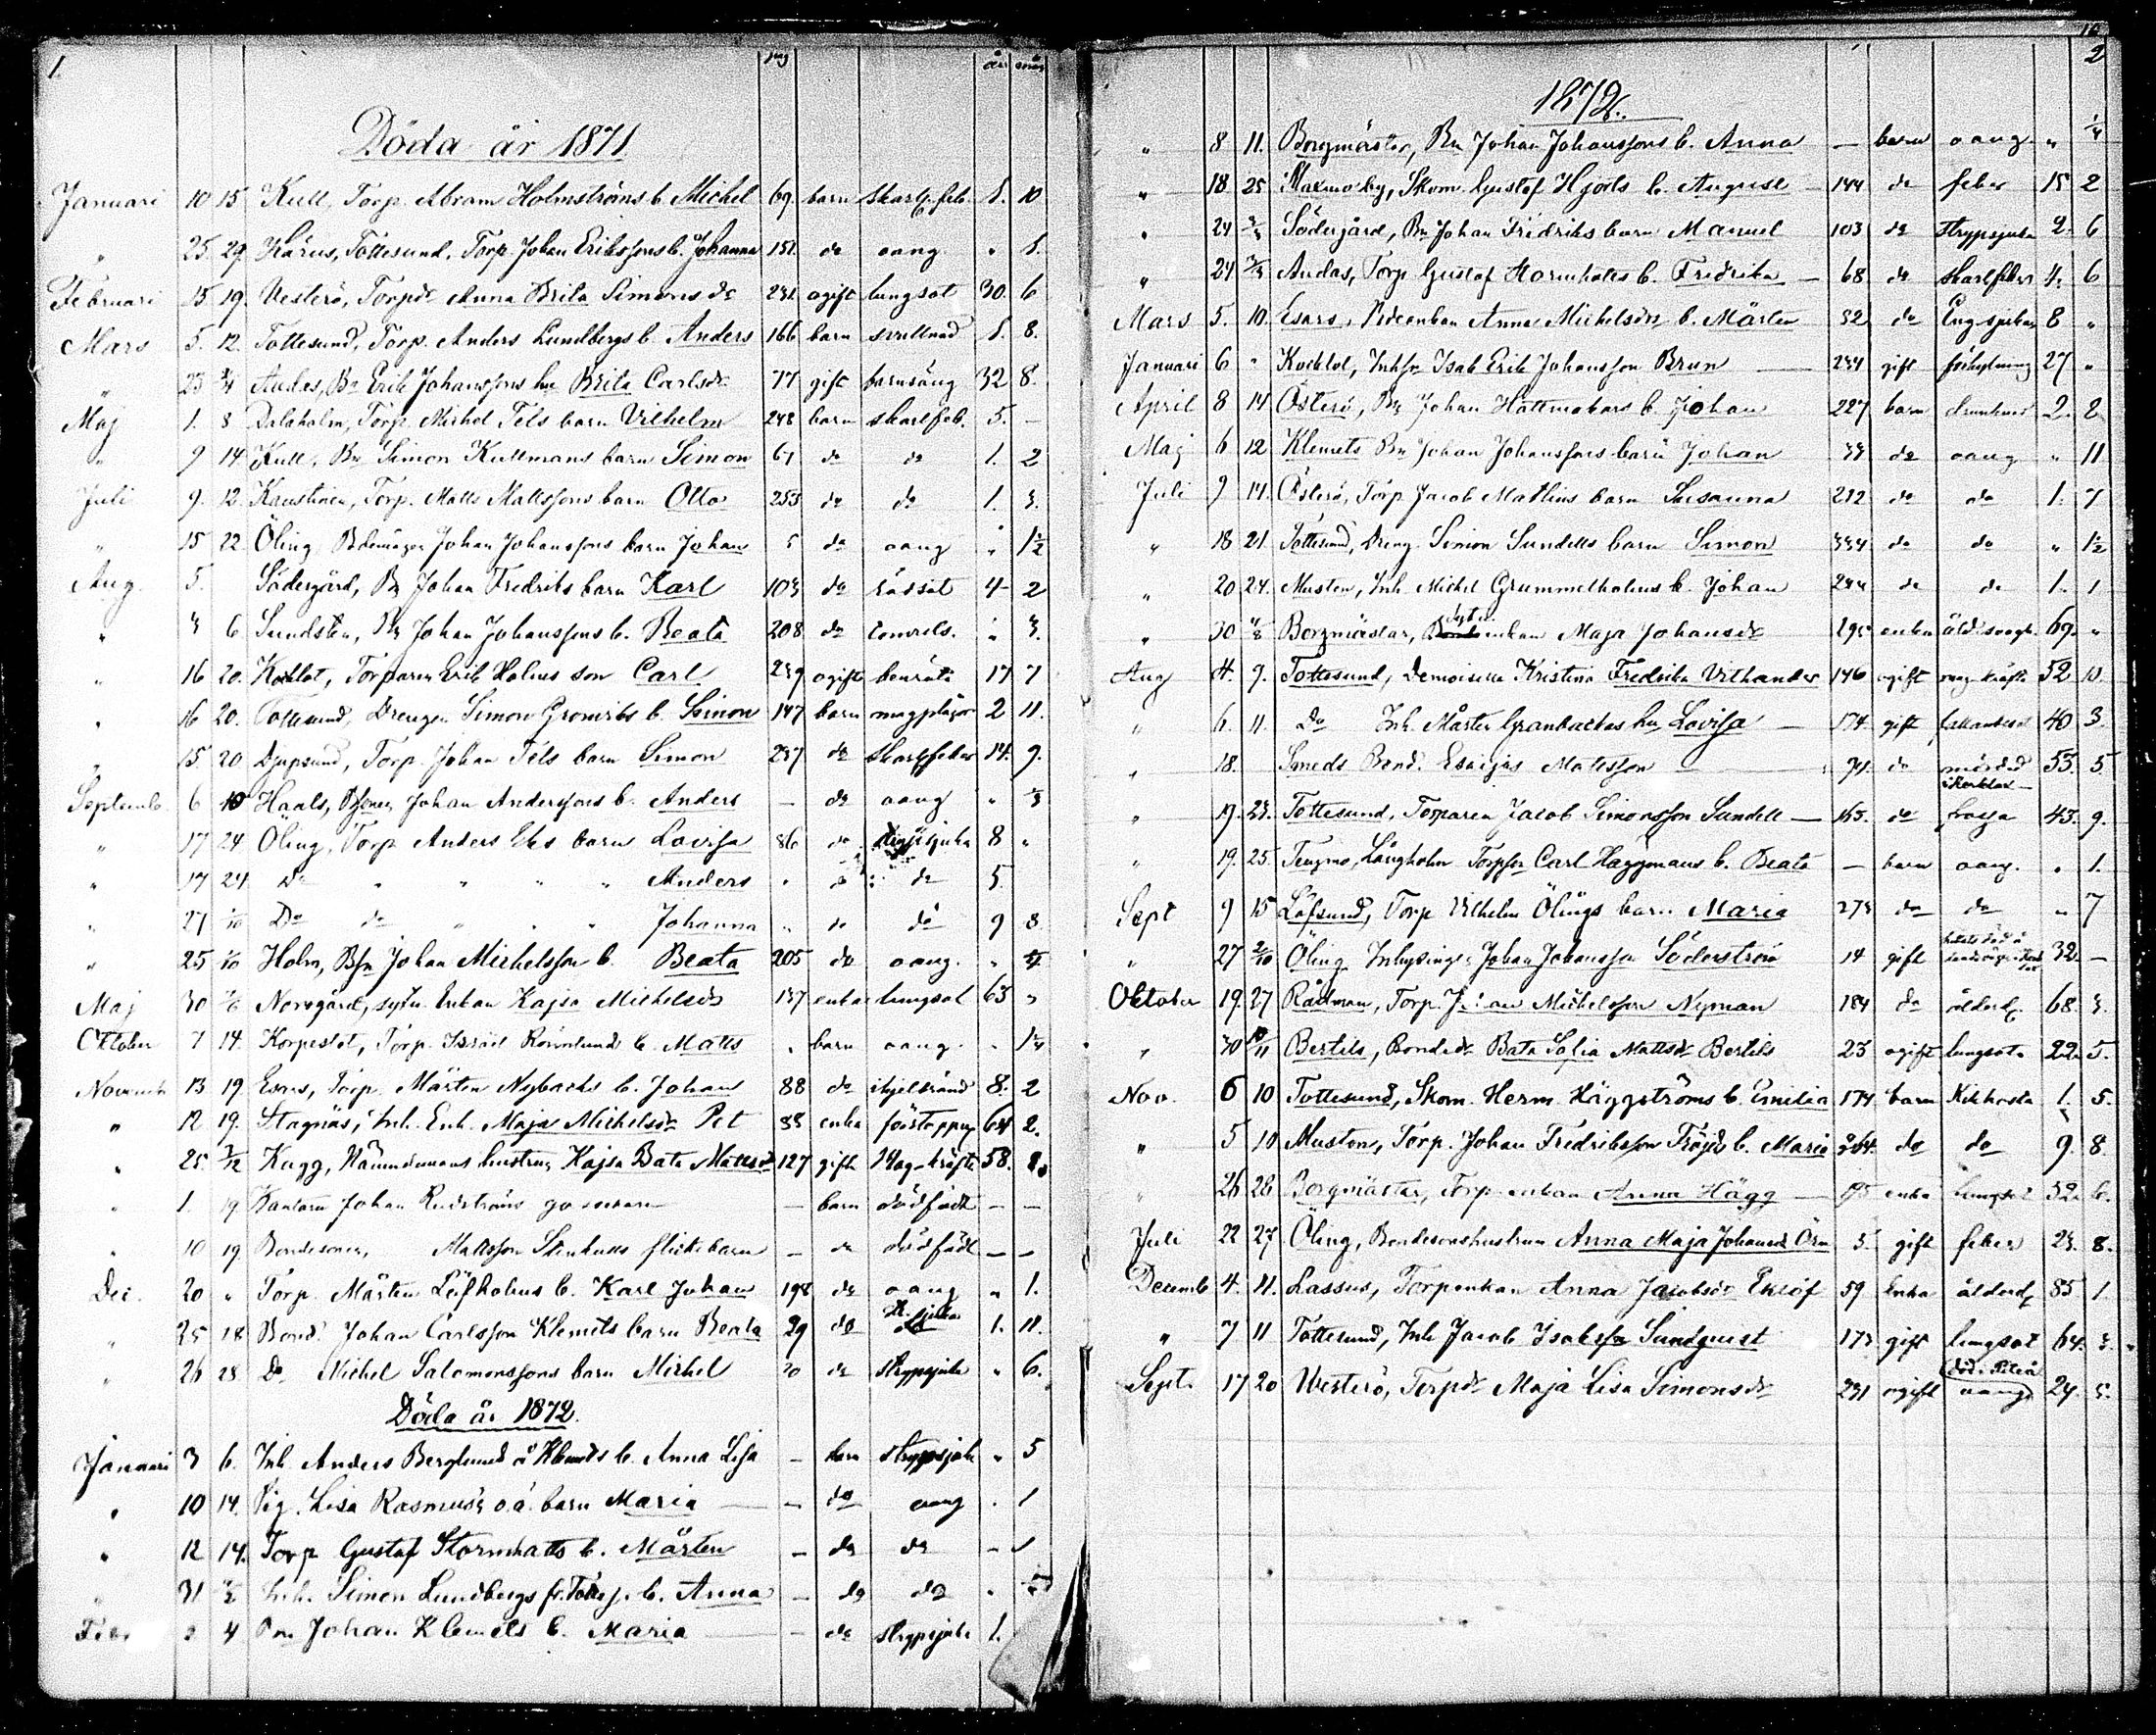 1.
pag år mån
Döda år 1871
Januari 10 15 Kull, Torp. Abram Holmströms b. Michel 69 barn skarl. feb. 8. 10
" 25. 29. Kärus, Tottesund, Torp Johan Erikssons b. Johanna 151 do oang. " 8.
Februari 15 19. Vesterö, Torpdr Anna Brita Simonsdr 231 ogift lungsot 30. 6
Mars 5. 12. Tottesund, Torp. Anders Lundbergs b. Anders 166 barn svullnad 8. 8.
" 23 2/4 Andas, Bn Erik Johanssons hu Brita Carlsdr 77 gift barnsäng 32 8.
Maj 1. 8 Dalaholm, Torp. Michel Tels barn Vilhelm 248 barn skarlfeb. 5. –
" 9 14 Kull, Bn Simon Kullmans barn Simon 61 do do 1. 2
Juli 9. 12. Kaustinen, Torp. Matts Mattssons barn Otto 253 do do 1. 3.
" 15 22. Öling Johan Johanssons barn Johan 5 do oang " 1½
Aug. 5. Södergård, Bn Johan Fredriks barn Karl 103 do rödsot 4 2
" 3 6. Sundsten, Bn Johan Johanssons b. Beata 208 do convuls. " 3.
" 16 20. Kocklot, Torparen Erik Holms son Carl 239 ogift benröta 17 7
" 16 20. Tottesund, Drengen Simon Gromribs b. Simon 147 barn magplågor 2 11.
" 15 20 Djupsund, Torp. Johan Tels barn Simon 237 do skarlfeber 14. 9.
Septemb. 6 10 Haals, Bsonen Johan Anderssons b. Anders – do oang " 1/3
" 17 24 Öling, Torp Anders Eks barn Lovisa 86 do 8 "
" 17 24 Do " " " " Anders " do do 5.
" 27 1/10 Do do " " " Johanna " do do 9 8
" 25 1/10 Holm, Bsn Johan Michelsson b. Beata 205 do oang. "
Maj 30 Norrgård, sytn. Enkan Kajsa Michelsdr 137 enka lungsot 63 "
Oktober 7 14. Korpeslot, Torp. Israel Rönnlunds b. Matts " barn oang. "
Novemb 13 19. Esars, Torp. Mårten Nybacks b. Johan 88 do ihjelbränd 8. 2
" 12 19. Stagnäs, Inh. Enk. Maja Michelsdr Pet 88 enka förstoppng 64 2.
" 25 2/12 Kugg, Nämndemans hustru Kajsa Bata Mattsdr 127 gift Mag-kräfta 58.
" 1. 19 Kantorn Johan Rudströms gossebarn – barn dödfödt – –
" 10 19. Bondesonen, Mattsson Stenhulls flickebarn – do dödfödt – –
Dec. 20 " Torp. Mårten Löfholms b. Karl Johan 198 do oang " 1.
" 25 18 Bond. Johan Carlsson Klemets barn Beata 29 do 1. 11.
" 26 28 Do Michel Salomonssons barn Michel 30 do strypsjuka " 6.
Döda år 1872.
Januari 3 6. Inh. Anders Berglund å Klemets b. Anna Lisa – barn strypsjuk " 5
" 10 14. Pig. Lisa Rasmus's o.ä. barn Maria – do oang " 1
" 12 14. Torp Gustaf Stormhatts b. Mårten – do do – 1
" 31 Inh. Simon Lundbergs fr. Tottes. b. Anna – do do "
Febr 2 4 Bn Johan Klemets b. Maria – do strypsjuka 1.
2
1872.
" 8 11. Borgmästar, Bn Johan Johanssons b. Anna – barn oang " ¼
" 18 25 Maxmo by, Skom. Gustaf Hjorts b. August 144 do feber 15 2
" 24 Södergård, Bn Johan Fredriks barn Manuel 103 do strypsjuka 2. 6
" 24 Andas, Torp Gustaf Stormhatts b. Fredrika – 68 do skarlfeber 4. 6
Mars 5. 10. Esars, Bdeenkan Anna Michelsdrs b. Mårten 32 do Eng. sjukan 8 "
Januari 6 " Kocklot, Inhsn Isak Erik Johansson Brun 234 gift 27 "
April 8 14 Österö, Bn Johan Hattmakars b. Johan 227 barn drunknad 2. 2
Maj 6 12 Klemets Bn Johan Johanssons barn Johan 33 do oang " 11
Juli 9 14. Österö, Torp Jacob Mathlins barn Susanna 232 do do 1. 7
" 18 21 Tottesund, Dreng Simon Sundells barn Simon 334 do do " 1½
" 20 24. Musten, Inh. Michel Grummelholms b. Johan 244 do do 1. 1
" 30 Borgmästar, sytn. enkan Maja Johansdr 295 enka åld.svagh. 69. "
Aug 4. 9. Tottesund, Demoiselle Kristina Fredrika Vithander 146 ogift mag-kräfta 52 10.
" 6. 11. Do Inh. Mårten Granbackas hu Lovisa – 174. gift fallandesot 40 3
" 18. Smeds Bond. Esaijas Mattsson 91. do mördad 53. 5
" 19. 23. Tottesund, Torparen Jacob Simonsson Sundell – 165. do frossa 43. 9.
" 19. 25. Teugmo, Långholm Torpsn Carl Häggmans b. Beata – barn oang. " 1.
Sept 9 15 Löfsund, Torp Vilhelm Ölings barn Maria 273 do do " 7
" 27 2/10 Öling Inhysingen Johan Johansson Söderström 14 gift 32 –
Oktober 19. 27 Rådman, Torp. Johan Michelsson Nyman 184 do ålderd. 68. 3.
" 30 10/11 Bertils, Bondedr Bata Sofia Mattsdr Bertils 23 ogift lungsot 22. 5.
Nov. 6 10 Tottesund, Skom. Herm. Häggströms b. Emilia 174 barn Kikhosta 1. 5.
" 5 10 Muston, Torp. Johan Fredriksson Fröjds b. Maria 264. do do 9. 8.
" 26 28 Borgmästar, Torp enkan Anna Hägg – enka lungsot 52. 6.
Juli 22 27. Öling, Bondesonshustrun Anna Maja Johansd. Örn 5. gift feber 23. 8.
Decemb 4. 11. Lassus, Torpenkan Anna Jacobsdr Eklöf 59 Enka ålderd. 85 1
" 7 11 Tottesund, Inh Jacob Isaksson Sundquist 173 gift lungsot 64. 3.
Sept. 17 20 Westerö, Torpdr Maja Lisa Simonsdr 231 ogift oang. 24. 5.